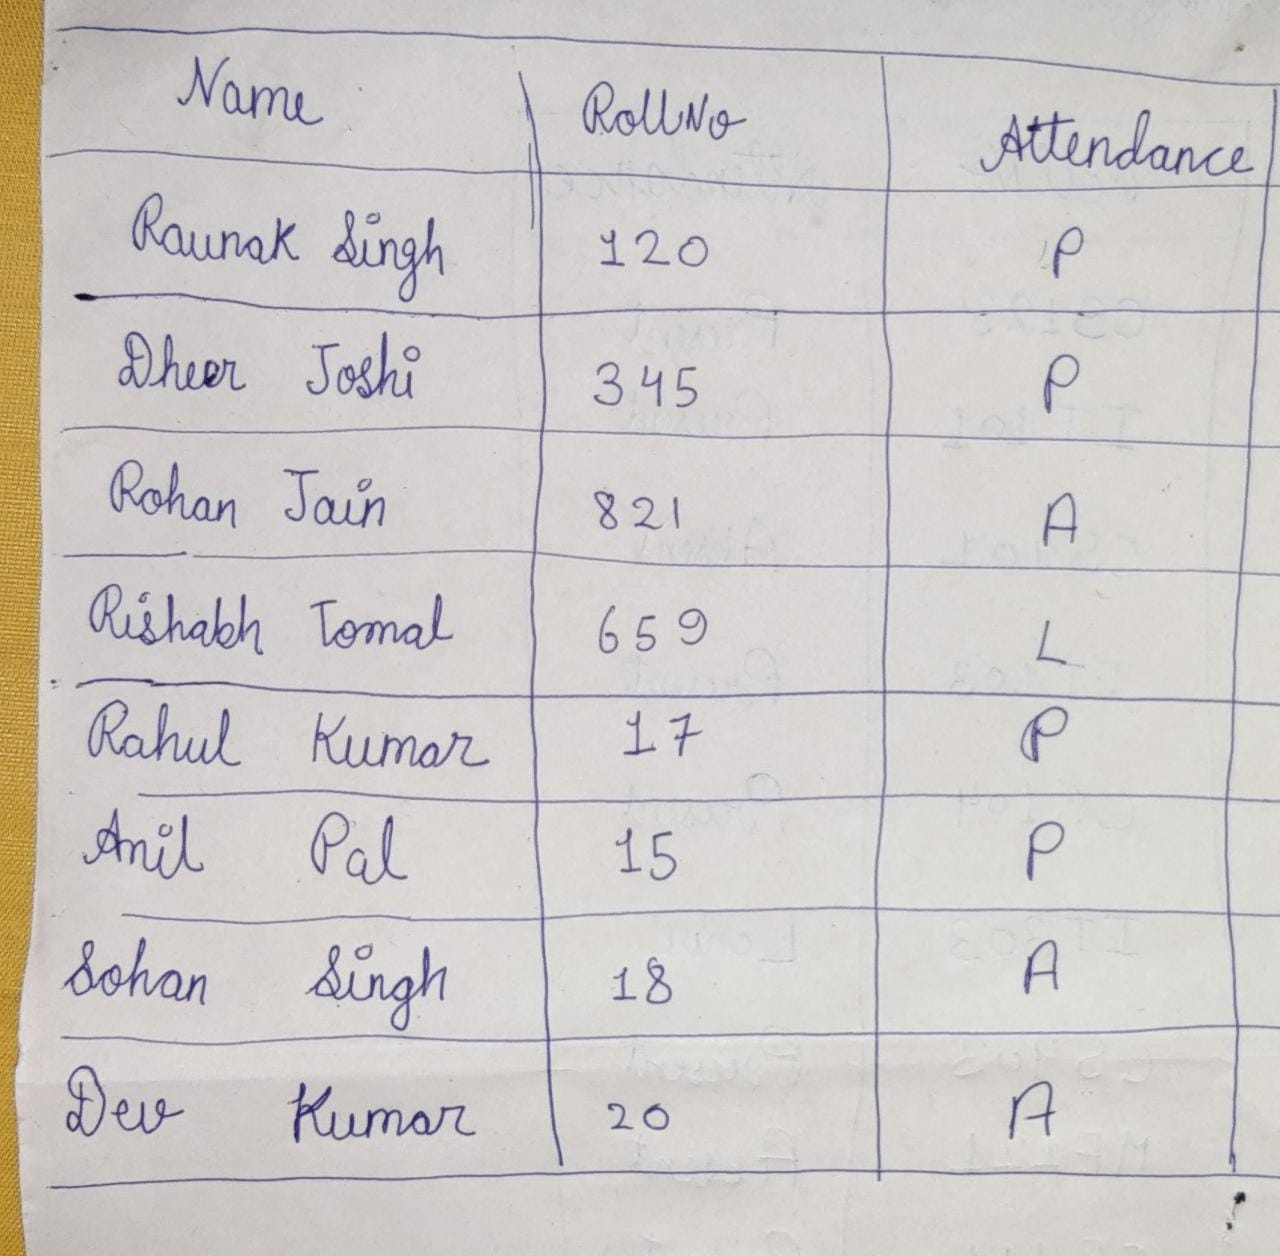 Name RollNo Attendance
Raunak Singh 120 P
Dheer Joshi 345 P
Rohan Jain 821 A
Rishabh Tomal 659 L
Rahul Kumar 17 P
Anil Pal 15 P
Sohan Singh 18 A
Dev Kumar 20 A